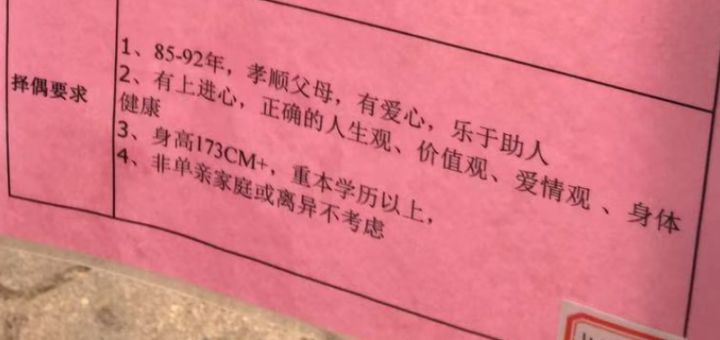 择偶要求
1、85-92年，孝顺父母，有爱心，乐于助人
2、有上进心，正确的人生观、价值观、爱情观 、身体
健康
3、身高173CM+，重本学历以上，
4、非单亲家庭或离异不考虑